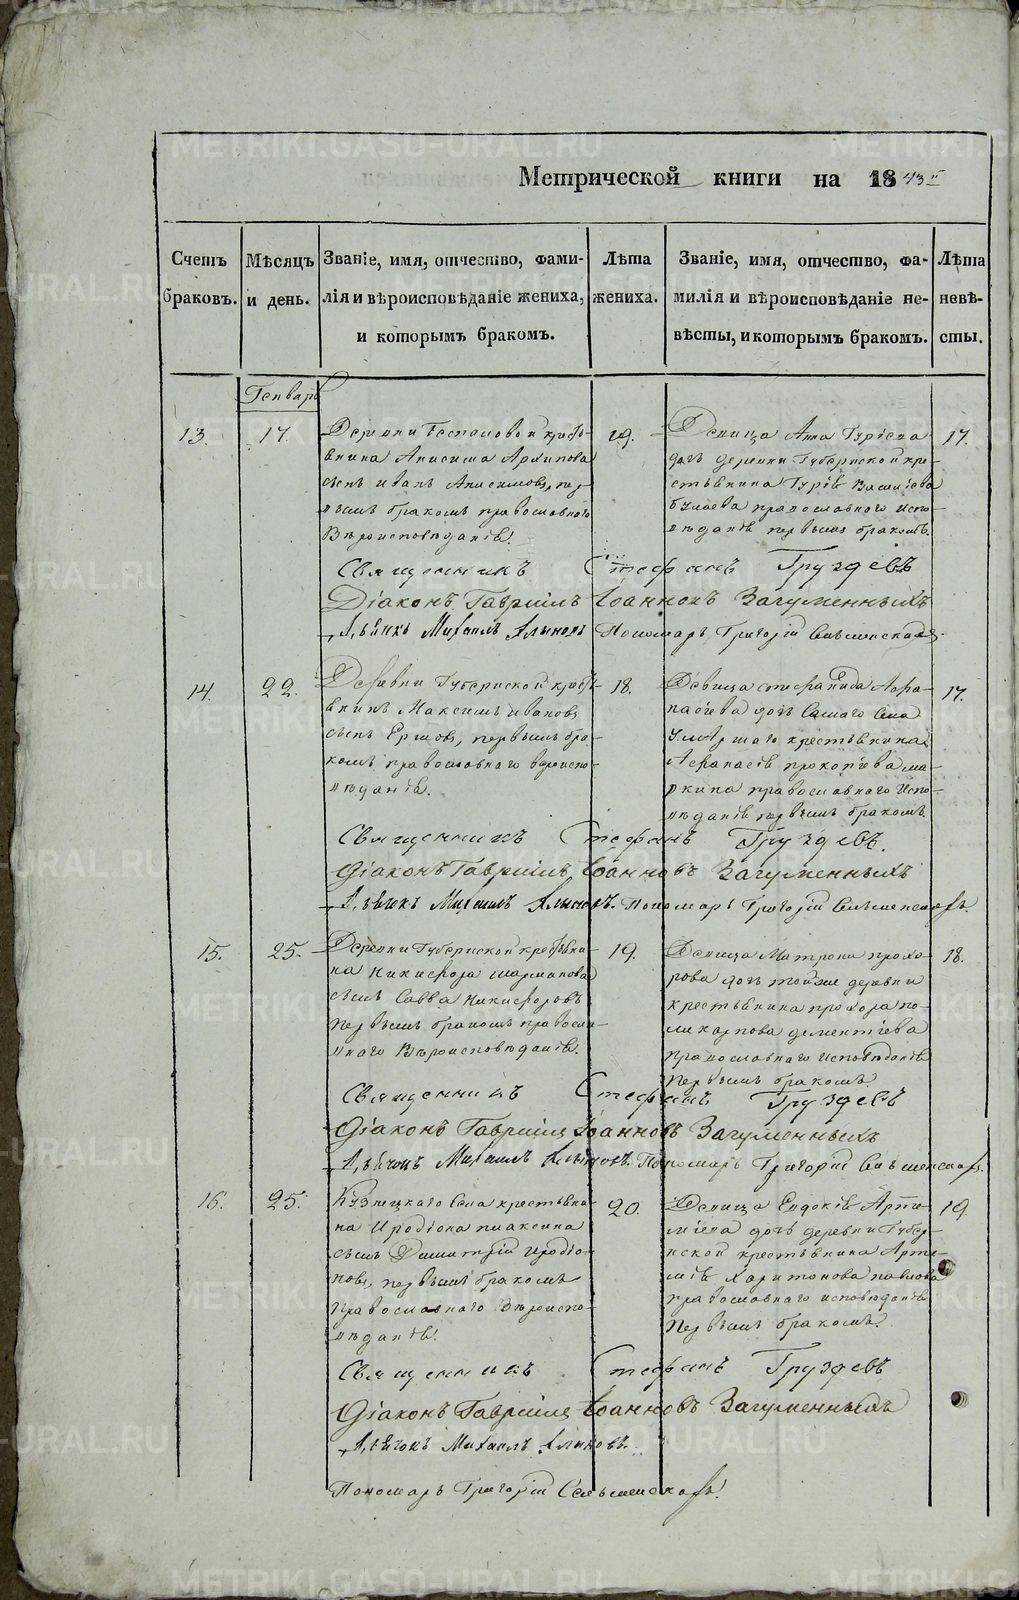 Метрической книги на 1843й
Счетъ браковъ.
Мѣсяцъ и день.
Званіе, имя, отчество, фами-
лія и вѣроисповѣданіе жениха,
и которымъ бракомъ.
Лѣта
жениха.
Званіе, имя, отчество, фа-
милія и вѣроисповѣданіе не-
вѣсты, и которымъ бракомъ.
Лѣта
невѣ-
сты.
Генварь
13.
17.
Деревни крестья-
нина Анисима Архипова
сынъ Иванъ Анисимовъ, пер-
вымъ бракомъ православнаго
Вѣроисповѣданія.
19.
Девица Анна Гуріева
дочь деревни Губернской кре-
стьянина Гурія Василіева
православного испо-
вѣданія первымъ бракомъ.
17.
Священникъ Стефанъ Груздевъ
Діаконъ Гавріилъ Іоанновъ Загуменныхъ
Дьячокъ Михаилъ Хлыновъ Пономарь Григорій
14.
22.
Деревни Губернской кресть-
янинъ Максимъ Ивановъ
сынъ Ершовъ, первымъ бра-
комъ православного вероиспо-
вѣданія.
18.
Девица Стефанида Афа-
насіева дочь Самаго Села
Умершаго крестьянина
Афанасія Прокопіева Ма-
ркина православнаго испо-
вѣданія первымъ бракомъ.
17.
Священникъ Стефанъ Груздевъ.
Діаконъ Гавріилъ Іоанновъ Загуменныхъ
Дьячокъ Михаилъ Хлыновъ. Пономарь Григорій
15.
25.
Деревни Губернской крестьяни-
на Никифора
сынъ Савва Никифоровъ
первымъ бракомъ правосла-
внаго Вѣроисповѣданія.
19.
Девица Матрона Прохо-
рова дочь тойже деревни
крестьянина Прохора По-
ликарпова Дементіева
православнаго исповѣданія
первымъ бракомъ.
18.
Священникъ Стефанъ Груздевъ
Діаконъ Гавріилъ Іоанновъ Загуменныхъ
Дьячокъ Михаилъ Хлыновъ. Пономарь Григорій
16.
25.
Кузнецкаго Села крестьяни-
на Иродіона
сынъ Димитрій Иродіо-
новъ, первымъ бракомъ
православнаго Вѣроиспо-
вѣданія.
20.
Девица Евдокія Арте-
міева дочь деревни Губер-
нской крестьянина Арте-
мія Харитонова Павлова
православнаго исповѣданія
первымъ бракомъ.
19.
Священникъ Стефанъ Груздевъ
Діаконъ Гавріилъ Іоанновъ Загуменныхъ
Дьячокъ Михаилъ Хлыновъ.
Пономарь Григорій
METRIKI.GASO-URAL.RU